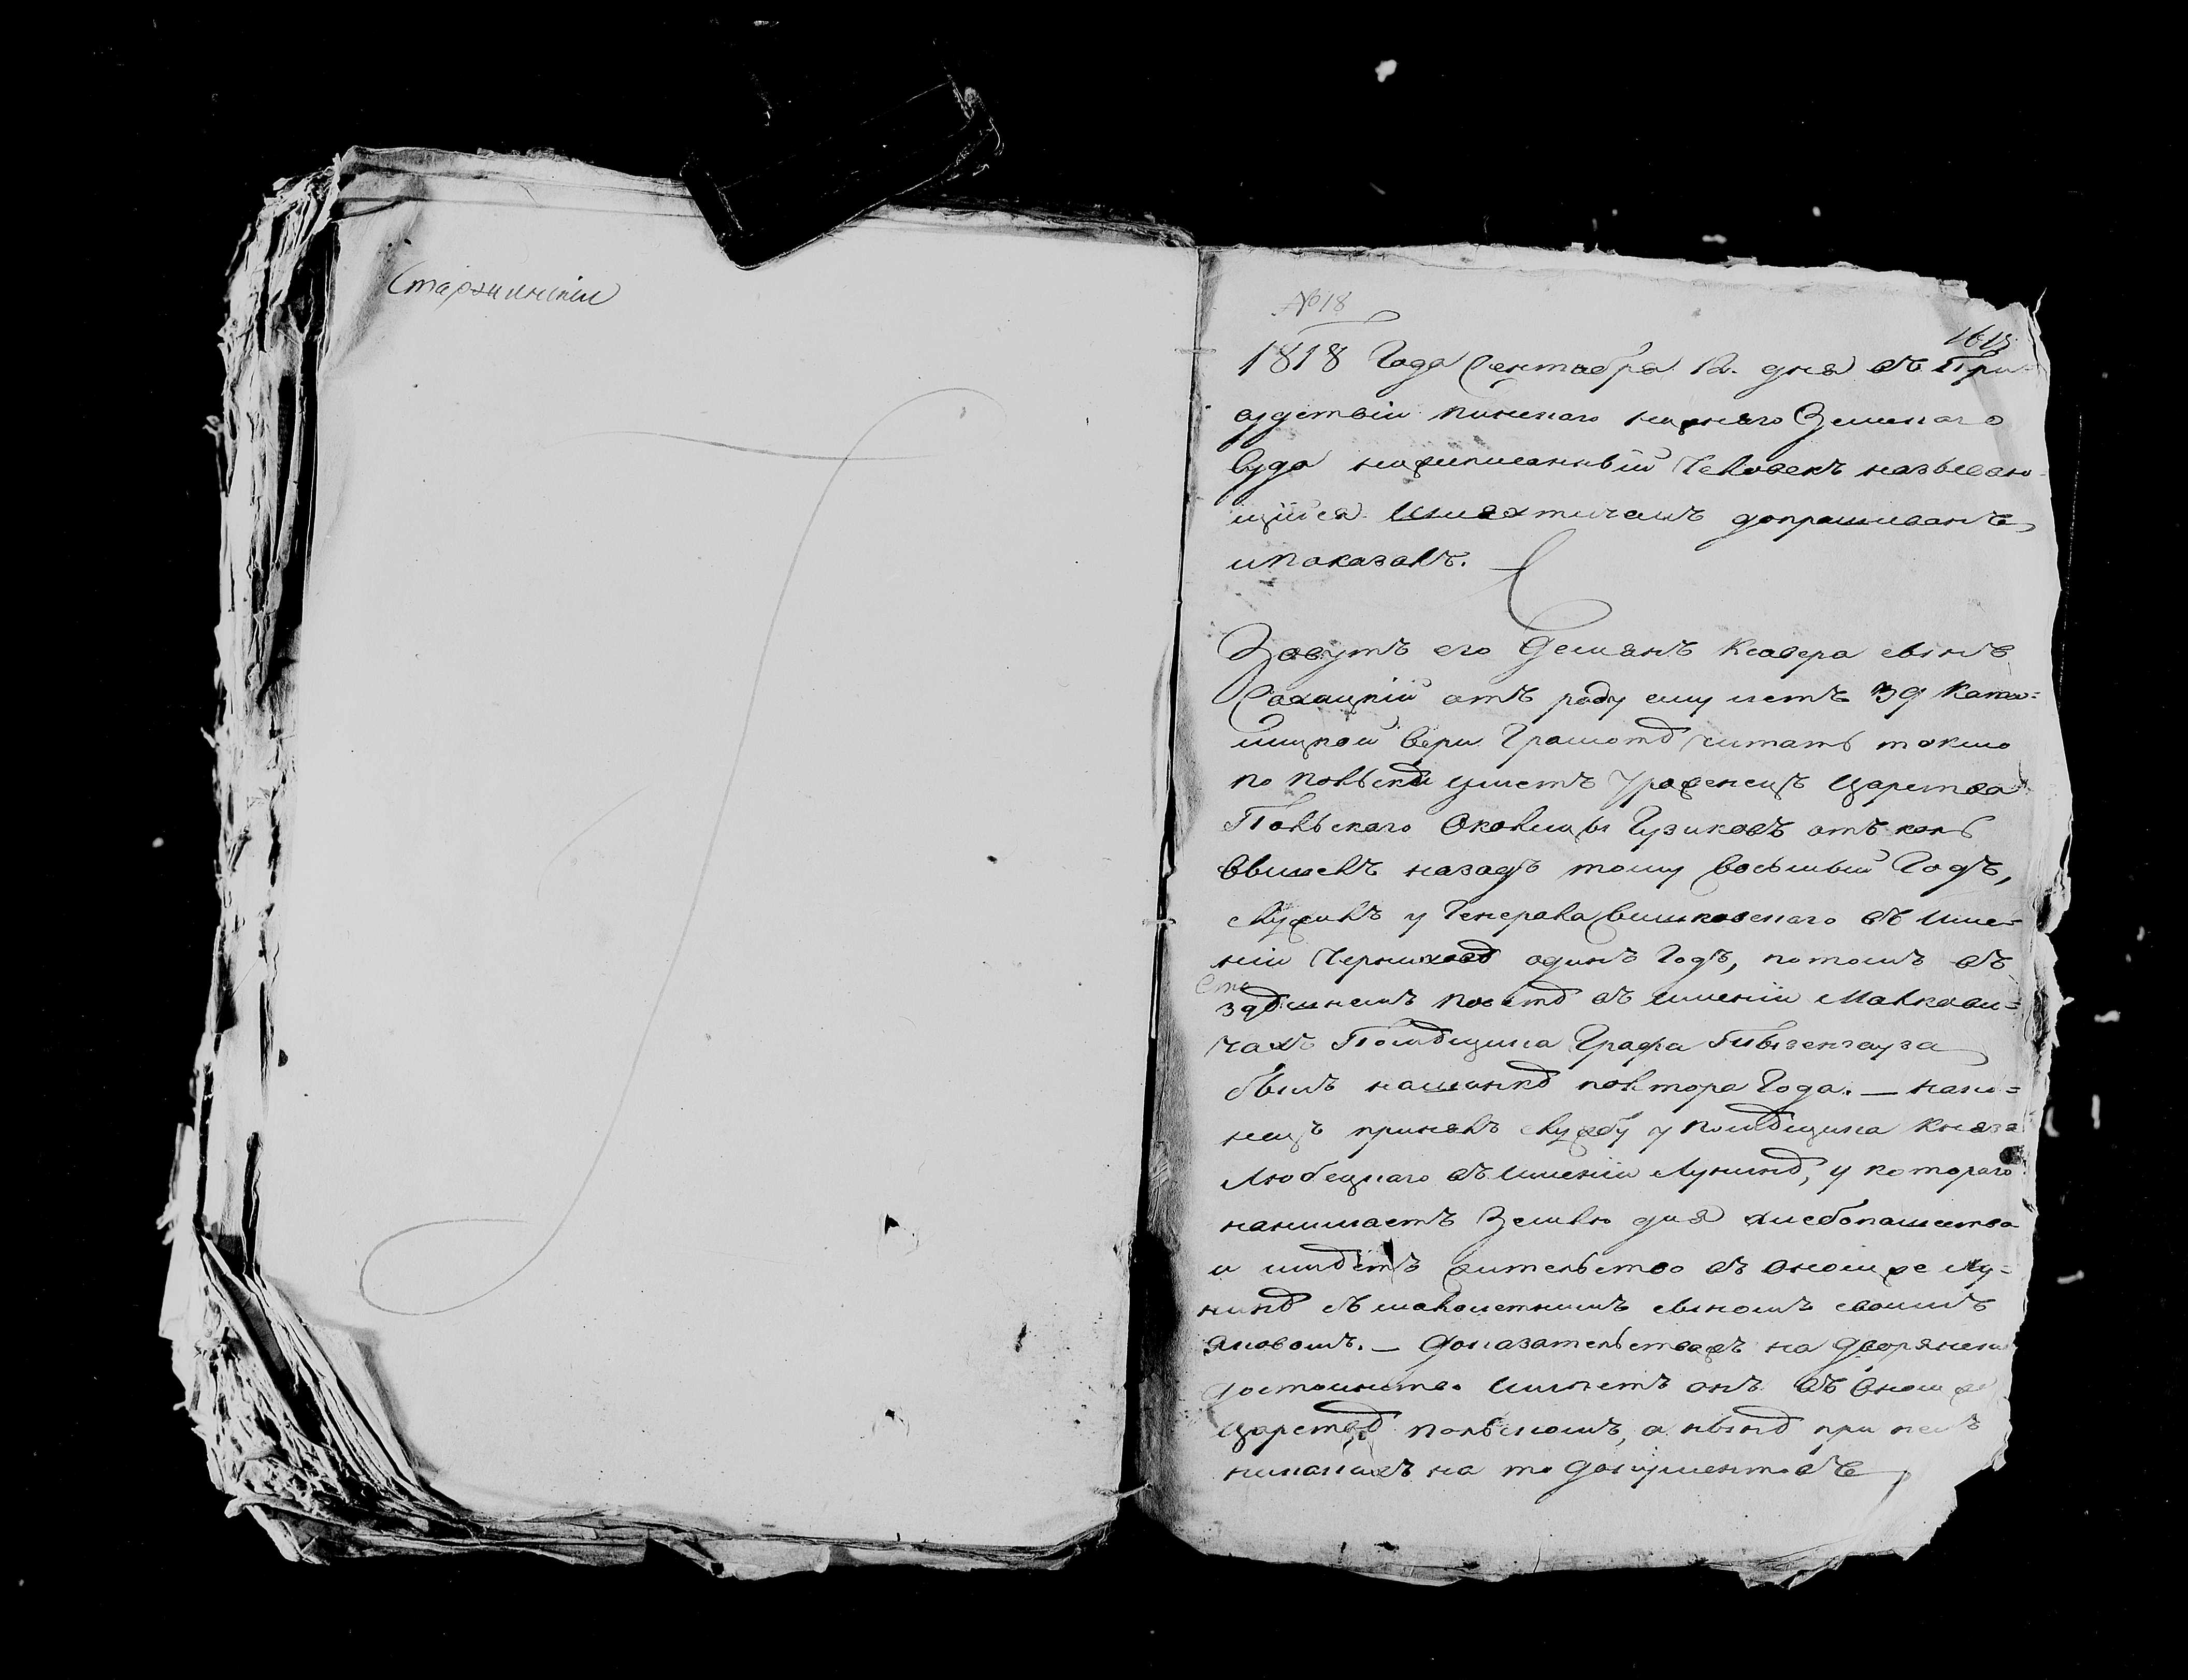 Старжинскіи
№ 18
1613
1818 Года Сентабря 12. дня въ При-
судствіи пинского нижняго Земского
Суда нижеписанный Человекъ называю-
щийся Шляхтичемъ допрашиванъ
и показалъ.
Зовутъ его Демянъ Ксавера сынъ
отъ роду ему летъ 39 Като-
лицкой вери Грамотѣ читать токмо
по польскѣ умеетъ Уроженецъ Царства
Польского Околицы Гузиковъ отколь
вышелъ назадъ тому восьмый Годъ,
служилъ у Генерала в въ име-
ніи одинъ Годъ, потомъ въ
повѣтѣ въ имѣніи Малкови-
чахъ Помѣщика Графа Пызенгауза
былъ полтора Года. — нако-
нецъ принялъ службу у помѣщика Князя
Любецкаго въ имѣніи Лунинѣ, у котораго
нанимаетъ Землю для хлебопашества
и имѣетъ жительство въ ономъ же Лу-
нинѣ съ малолетнимъ сыномъ своимъ
Яковомъ. — Доказательства жъ на дворянско
достоинство имѣетъ онъ въ ономъ же
Царствѣ польскомъ, а нынѣ при немъ
никакихъ на то документовъ